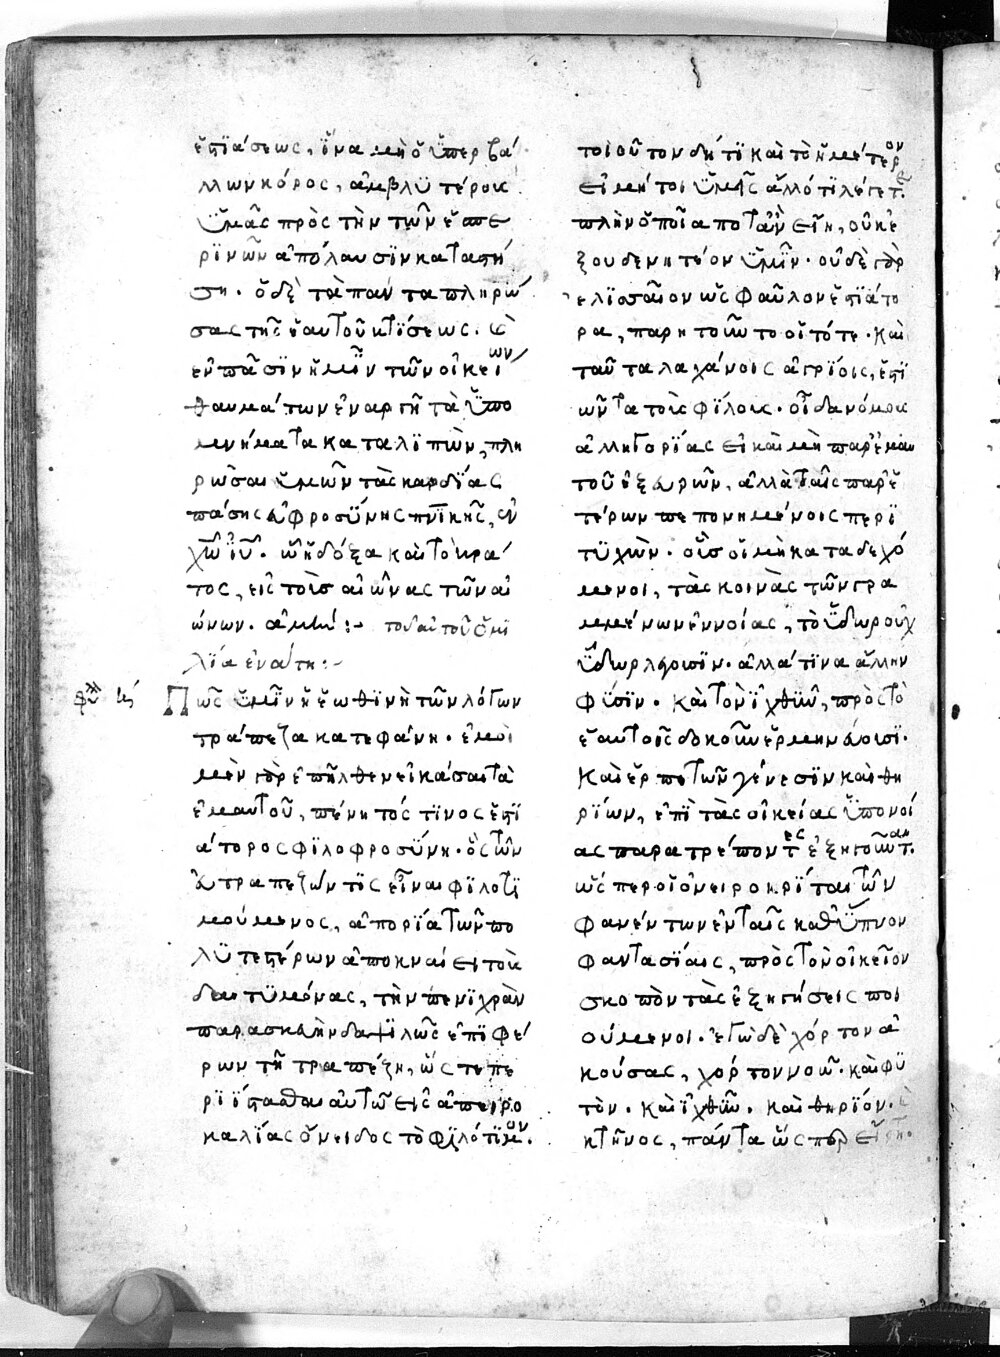 ἑστιάσεως, ἵνα μὴ ὁ ὑπερβά
λλων κόρος, ἀμβλυτέρους
ὑμᾶς πρὸς τὴν τῶν ἑσπε
ρινῶν ἀπόλαυσιν καταστή
ση. ὁ δὲ τὰ πάντα πληρώ
σας τῆς ἑαυτοῦ κτίσεως. καὶ
ἐν πᾶσιν ἡμῖν τῶν οἰκείων
θαυμάτων ἐναργῆ τὰ ὑπο
μνήματα καταλιπὼν, πλη
ρῶσαι ὑμῶν τὰς καρδίας
πάσης εὐφροσύνης πνικῆς, ἐν
χῶ ἰῦ. ὧ ἡ δόξα καὶ τὸ κρά
τος, εἰς τοὺς αἰῶνας τῶν αἰ
ώνων. ἀμήν :- τοῦ αὐτοῦ ὁμι
λία ἐνάτη :-
Πῶς ὑμῖν ἡ ἑωθινὴ τῶν λόγων
τράπεζα κατεφάνη. ἐμοὶ
μὲν γὰρ ἐπῆλθεν εἰκάσαι τὰ
ἐμαυτοῦ, πένητός τινος ἑστι
άτορος φιλοφροσύνη. ὃς τῶν
εὐτραπεζων τις εἶναι φιλοτι
μούμενος, ἀπορία τῶν πο
λυτελέστέρων ἀποκναίει τοὺς
δαιτυμόνας, τὴν πενιχρὰν
παρασκευὴν δαψιλῶς ἐπιφέ
ρων τῆ τραπέζη, ὥστε πε
ριΐστασθαι αὐτῶ εἰς ἀπειρο
καλίας ὄνειδος τὸ φιλότιμον.
τοιοῦτον δή τι καὶ τὸ ἡμέτερον
εἰ μή τοι ὑμεῖς ἄλλό τι λέγετε.
πλὴν ὁποῖα ποτ ἂν εἴη, οὐκ ἐ
ξουδενητέον ὑμῖν. οὐδὲ γὰρ
ἐλισσαῖον ὡς φαῦλον ἑστιάτο
ρα, παρητοῦντο οἱ τότε. καὶ
ταῦτα λαχάνοις ἀγρίοις, ἑστι
ῶντα τοὺς φίλους. οἶδα νόμους
ἀλληγορίας εἰ καὶ μὴ παρ ἐμαυ
τοῦ ἐξευρῶν, ἀλλὰ ταῖς παρ ἑ
τέρων πεπονημένοις περι
τυχὼν. οὓς οἱ μὴ καταδεχό
μενοι, τὰς κοινὰς τῶν γρα
μμένων ἐννοίας, τὸ ὕδωρ οὐχ
ὕδωρ λέγουσιν. ἀλλά τινα ἄλλην
φύσιν. καὶ τὸν ἰχθῦν, πρὸς τὸ
ἑαυτοῖς δοκοῦν ἑρμηνεύουσι.
καὶ ἑρπετῶν γένεσιν καὶ θη
ρίων, ἐπὶ τὰς οἰκείας ὑπονοί
ας παρατρέποντες ἐξηγοῦνται.
ὥσπερ οἱ ὀνειροκρίται τῶν
φανέντων ἐν ταῖς καθ ὕπνον
φαντασίαις, πρὸς τὸν οἰκεῖον
σκοπὸν τὰς ἐξηγήσεις ποι
ούμενοι. ἐγὼ δὲ χόρτον ἀ
κούσας, χόρτον νοῶ. καὶ φυ
τὸν. καὶ ἰχθῦν. καὶ θηρίον. καὶ
κτῆνος, πάντα ὥσπερ εἴρηται